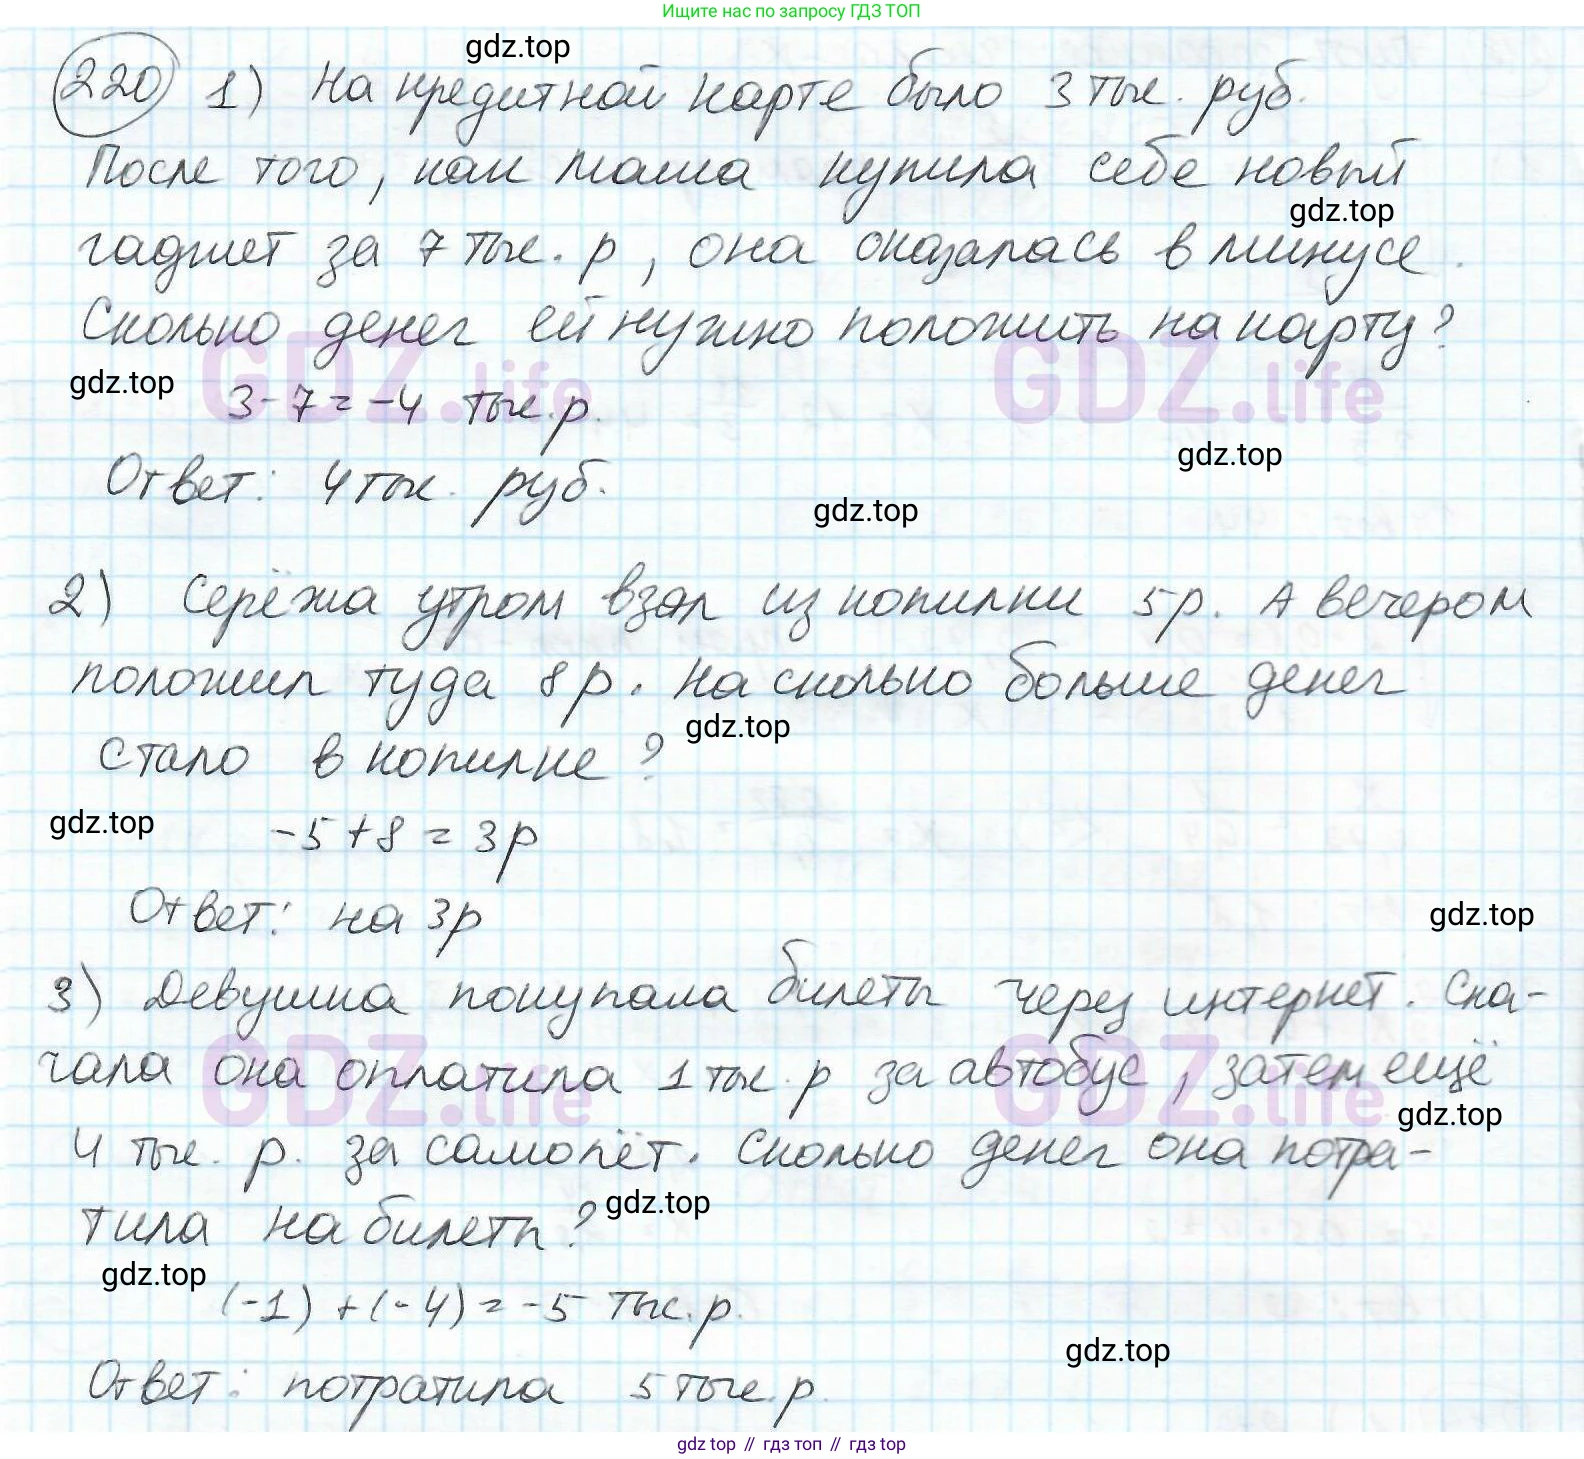 Ищите нас по запросу ГДЗ ТОП
gdz.top
220 1) На кредитной карте было 3 тыс. руб.
После того, как Маша купила себе новый
gdz.top
гаджет за 7 тыс. р, она оказалась в минусе.
Сколько денег ей нужно положить на карту?
GDZ.life GDZ.life
gdz.top
3-7=-4 тыс.р.
gdz.top
Ответ: 4 тыс. руб.
gdz.top
2) Серёжа утром взял из копилки 5р. А вечером
положил туда 8р. На сколько больше денег
gdz.top
стало в копилке?
gdz.top
-5+8=3р
Ответ: на 3р
gdz.top
3) Девушка покупала билеты через интернет. Сна-
чала она оплатила 1 тыс. р за автобус, затем ещё
GDZ.life GDZ.life
gdz.top
4 тыс. р. за самолёт. Сколько денег она потра-
gdz.top
тила на билеты?
gdz.top
(-1)+(-4)=-5 тыс.р.
gdz.top
Ответ: потратила 5 тыс.р.
gdz top // гдз топ // гдз top